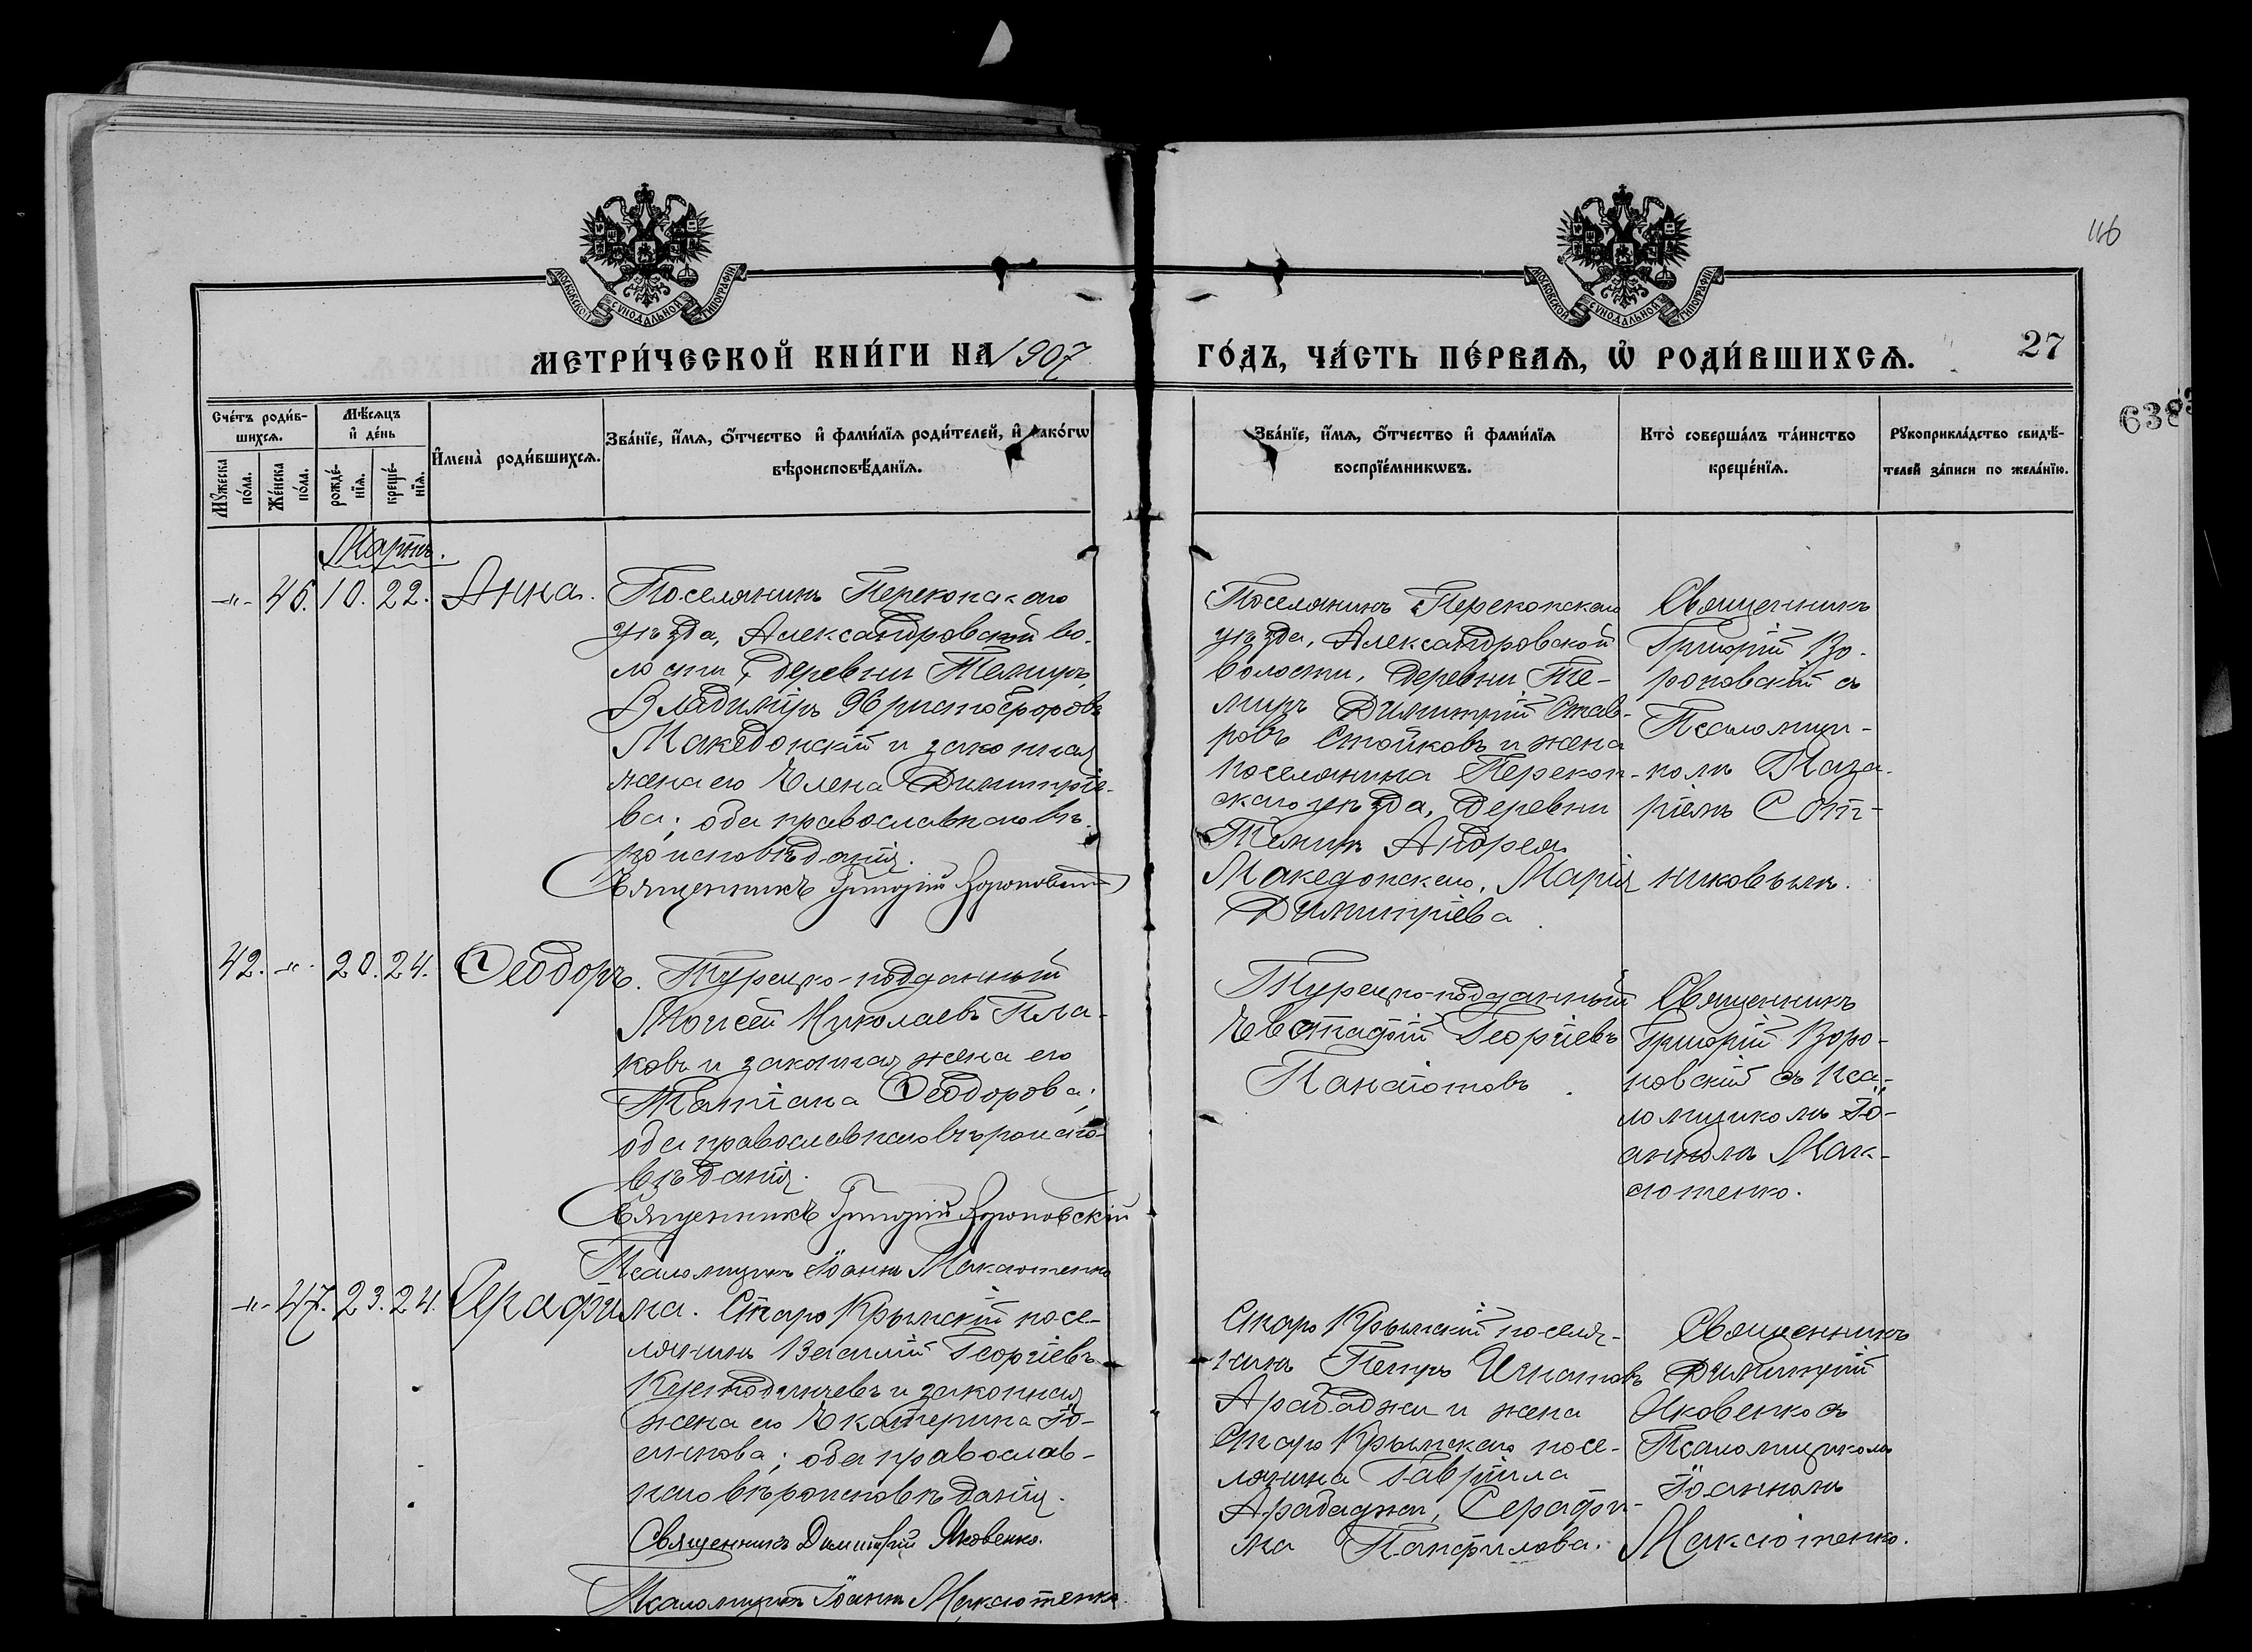 116
МОСКОВСКОЙ СУНОДАЛЬНОЙ ТИПОГРАФІИ
МОСКОВСКОЙ СУНОДАЛЬНОЙ ТИПОГРАФІИ
МЕТРИ́ЧЕСКОЙ КНИ́ГИ НА 1907
ГО́ДЪ, ЧА́СТЬ ПЕ́РВАѦ, Ѡ҆ РОДИ́ВШИХСѦ.
27
638
Сче́тъ роди́в-
шихсѧ.
Мꙋ́жеска
по́ла.
Же́нска
по́ла.
Мѣ́сѧцъ
и҆ де́нь
рожде́-
нїѧ.
креще́-
нїѧ.
И҆мена̀ роди́вшихсѧ.
Зва́нїе, и҆́мѧ, ѻ҆́тчество и҆ фами́лїѧ роди́телей, и҆ како́гѡ
вѣроисповѣ́данїѧ.
Зва́нїе, и҆́мѧ, ѻ҆́тчество и҆ фами́лїѧ
воспрїе́мникѡвъ.
Кто̀ соверша́лъ та́инство
креще́нїѧ.
Рꙋкоприкла́дство свидѣ́-
телей за́писи по жела́нїю.
Мартъ.
-"- 46. 10. 22. Анна.
Поселянинъ Перекопскаго
уѣзда, Александровской во-
лости, деревни Темиръ,
Владиміръ Христофоровъ
Македонскій и законная
жена его Елена Димитріе-
ва; оба православнаго вѣ-
роисповѣданія.
Священникъ Григорій
Поселянинъ Перекопскаго
уѣзда, Александровской
волости, деревни Те-
миръ Димитрій Став-
ровъ Стойковъ и жена
поселянина Перекоп-
скаго уѣзда, деревни
Темиръ Андрея
Македонскаго, Марія
Димитріева
Священникъ
Григорій
съ
Псаломщи-
комъ Наза-
ріемъ Сот-
никовымъ.
42. -"- 20. 24. Ѳеодоръ.
Турецко-подданный
Моисей Николаевъ Пла-
ковъ и законная жена его
Татіана Ѳеодорова;
оба православнаго вѣроиспо-
вѣданія.
Священникъ Григорій
Псаломщикъ Іоаннъ Максютенко
Турецко-подданный
Евстафій Георгіевъ
Панаіотовъ
Священникъ
Григорій
съ Пса-
ломщикомъ Іо-
анномъ Мак-
сютенко.
-"- 47. 23. 24. Серафима.
Старо Крымскій посе-
лянинъ Василій Георгіевъ
и законная
жена его Екатерина Іо-
аннова; оба православ-
наго вѣроисповѣданія.
Священникъ Димитрій Яковенко.
Псаломщикъ Іоаннъ Максютенко.
Старо Крымскій поселя-
нинъ Петръ Игнатовъ
Арабаджи и жена
Старо Крымскаго посе-
лянина Гавріила
Арабаджи, Серафи-
ма Панфилова.
Священникъ
Димитрій
Яковенко съ
Псаломщикомъ
Іоанномъ
Максютенко.